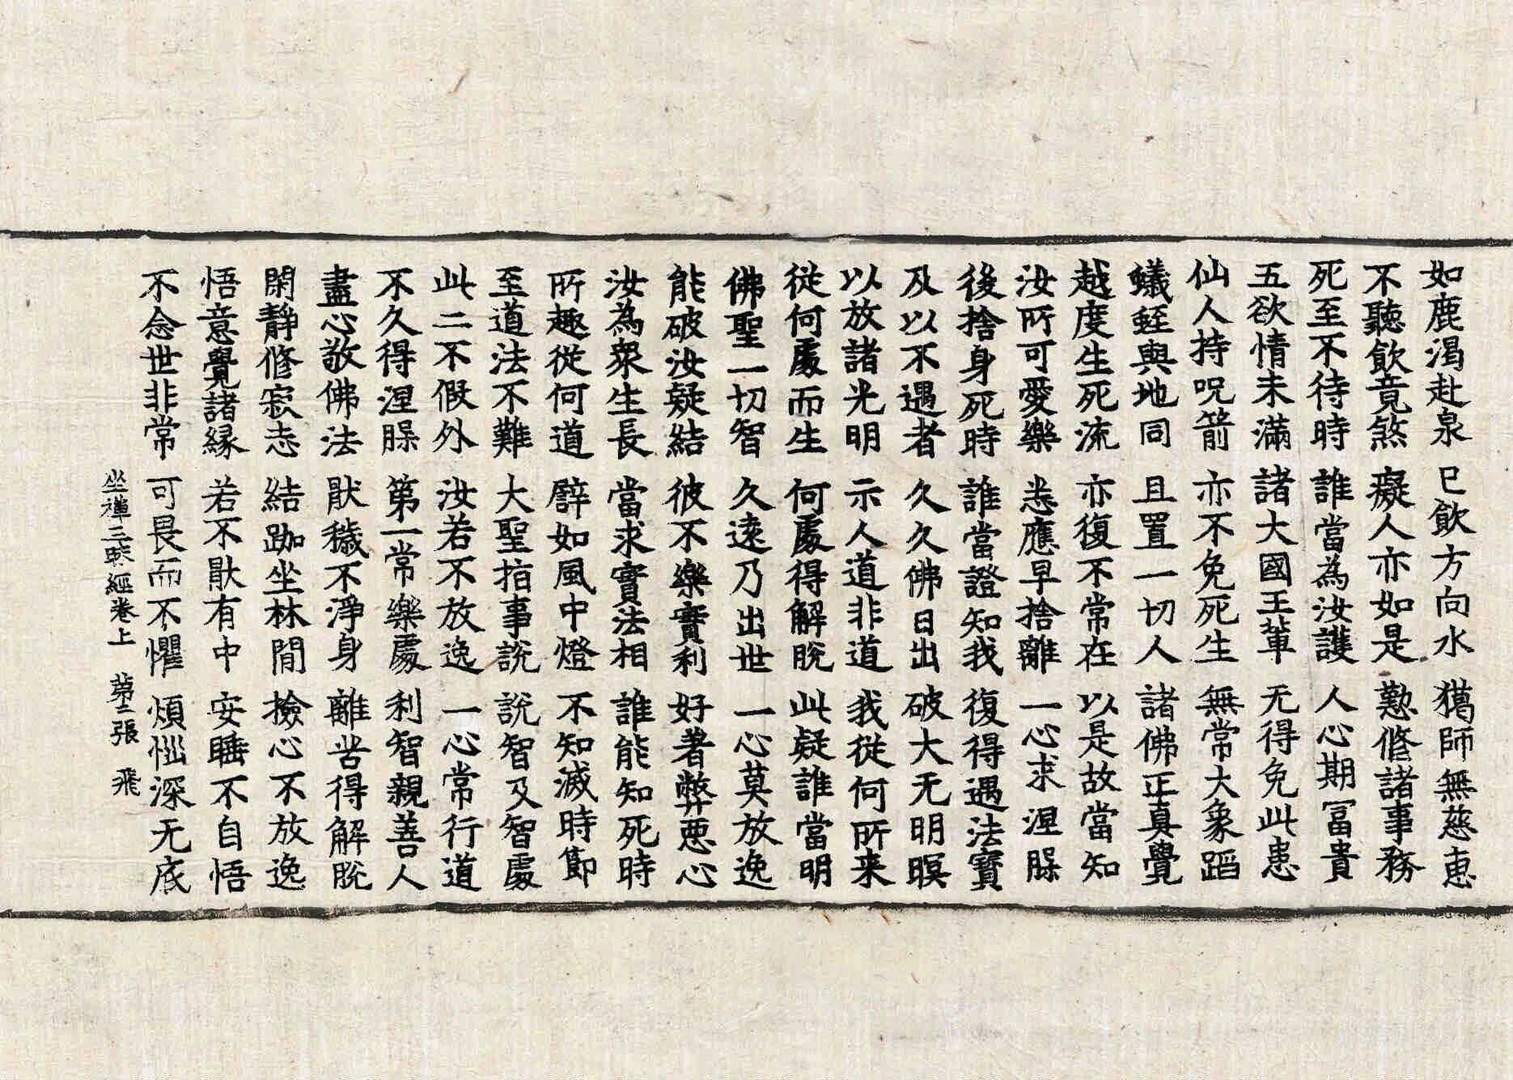 如鹿渴赴泉 已飲方向水 獦師無慈惠
不聽飲竟煞 癡人亦如是 懃修諸事務
死至不待時 誰當為汝護 人心期冨貴
五欲情未滿 諸大國王軰 无得免此患
仙人持呪箭 亦不免死生 無常大象蹈
蟻蛭與地同 且置一切人 諸佛正真覺
越度生死流 亦復不常在 以是故當知
汝所可愛樂 悉應早捨離 一心求涅槃
後捨身死時 誰當證知我 復得遇法寶
及以不遇者 久久佛日出 破大无明暝
以放諸光明 示人道非道 我從何所来
從何處而生 何處得解脫 此疑誰當明
佛聖一切智 久遠乃出世 一心莫放逸
能破汝疑結 彼不樂實利 好著弊惡心
汝為衆生長 當求實法相 誰能知死時
所趣從何道 譬如風中燈 不知滅時節
至道法不難 大聖指事說 說智及智處
此二不假外 汝若不放逸 一心常行道
不久得涅槃 第一常樂處 利智親善人
盡心敬佛法 猒穢不淨身 離苦得解脫
閑靜修寂志 結跏坐林間 撿心不放逸
悟意覺諸縁 若不猒有中 安睡不自悟
不念世非常 可畏而不懼 煩惱深无底
坐禪三昧經卷上 第二張 飛